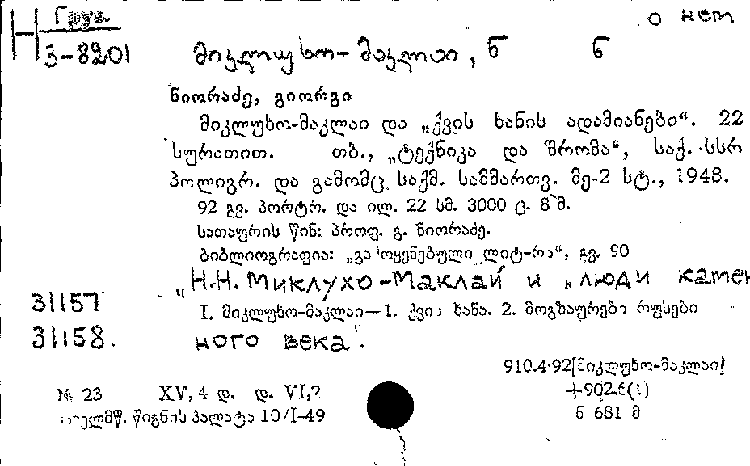 Груз. о нем
Н
3-8201 მიკლუხო-მაკლაი, ნ ნ
ნიორაძე, გიორგი
მიკლუხო-მაკლაი და „ქვის ხანის ადამიანები“. 22
სურათით. თბ., „ტექნიკა და შრომა“, საქ. სსრ
პოლიგრ. და გამომც. საქმ. სამმართვ. მე-2 სტ., 1948.
92 გვ. პორტრ. და ილ. 22 სმ. 3000 ც. 8 მ.
სათაურის წინ: პროფ. გ. ნიორაძე.
ბიბლიოგრაფია: „გამოყენებული ლიტ-რა“, გვ. 90
„Н.Н. Миклухо-Маклай и „люди камен
31157 I. მიკლუხო-მაკლაი—1. ქვის ხანა. 2. მოგზაურები რუსები
31158. ного века".
910.4:92[მიკლუხო-მაკლაი]
№ 23 XV, 4 დ. დ. VI,2 +902.6(1)
წიგნის პალატა 10/I-49 ნ 681 მ